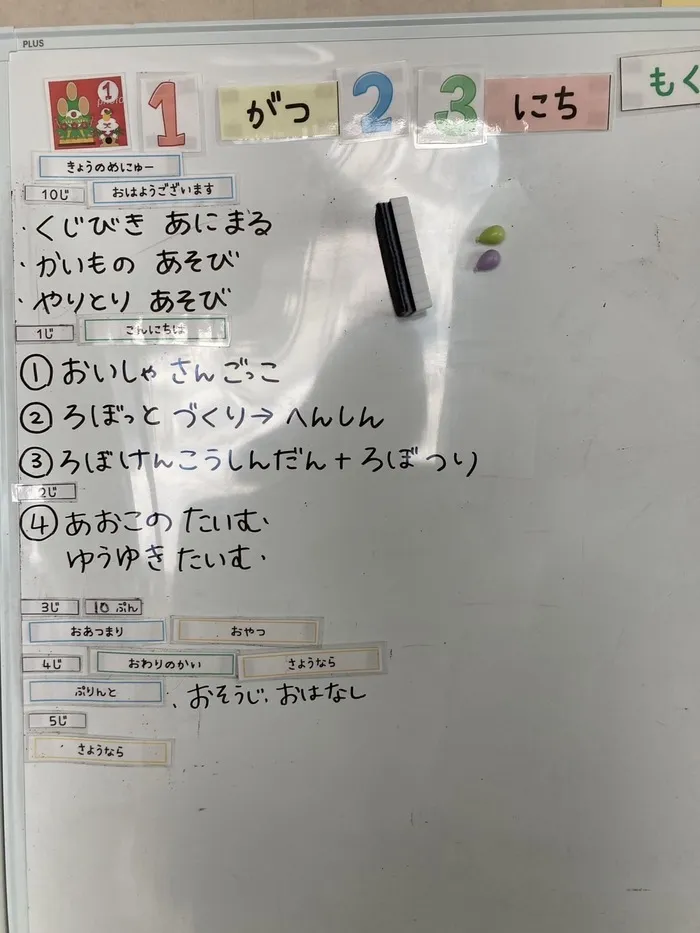 PLUS
1
1 がつ 23 にち もく
きょうのめにゅー
10じ おはようございます
・くじびき あにまる
・かいもの あそび
・やりとり あそび
1じ こんにちは
① おいしゃ さん ごっこ
② ろぼっと づくり→ へんしん
③ ろぼ けんこうしんだん + ろぼ つり
2じ
④ あおこの たいむ・
ゆうゆき たいむ・
3じ 10 ぷん
おあつまり おやつ
4じ おわりのかい さようなら
ぷりんと 、おそうじ、おはなし
5じ
さようなら